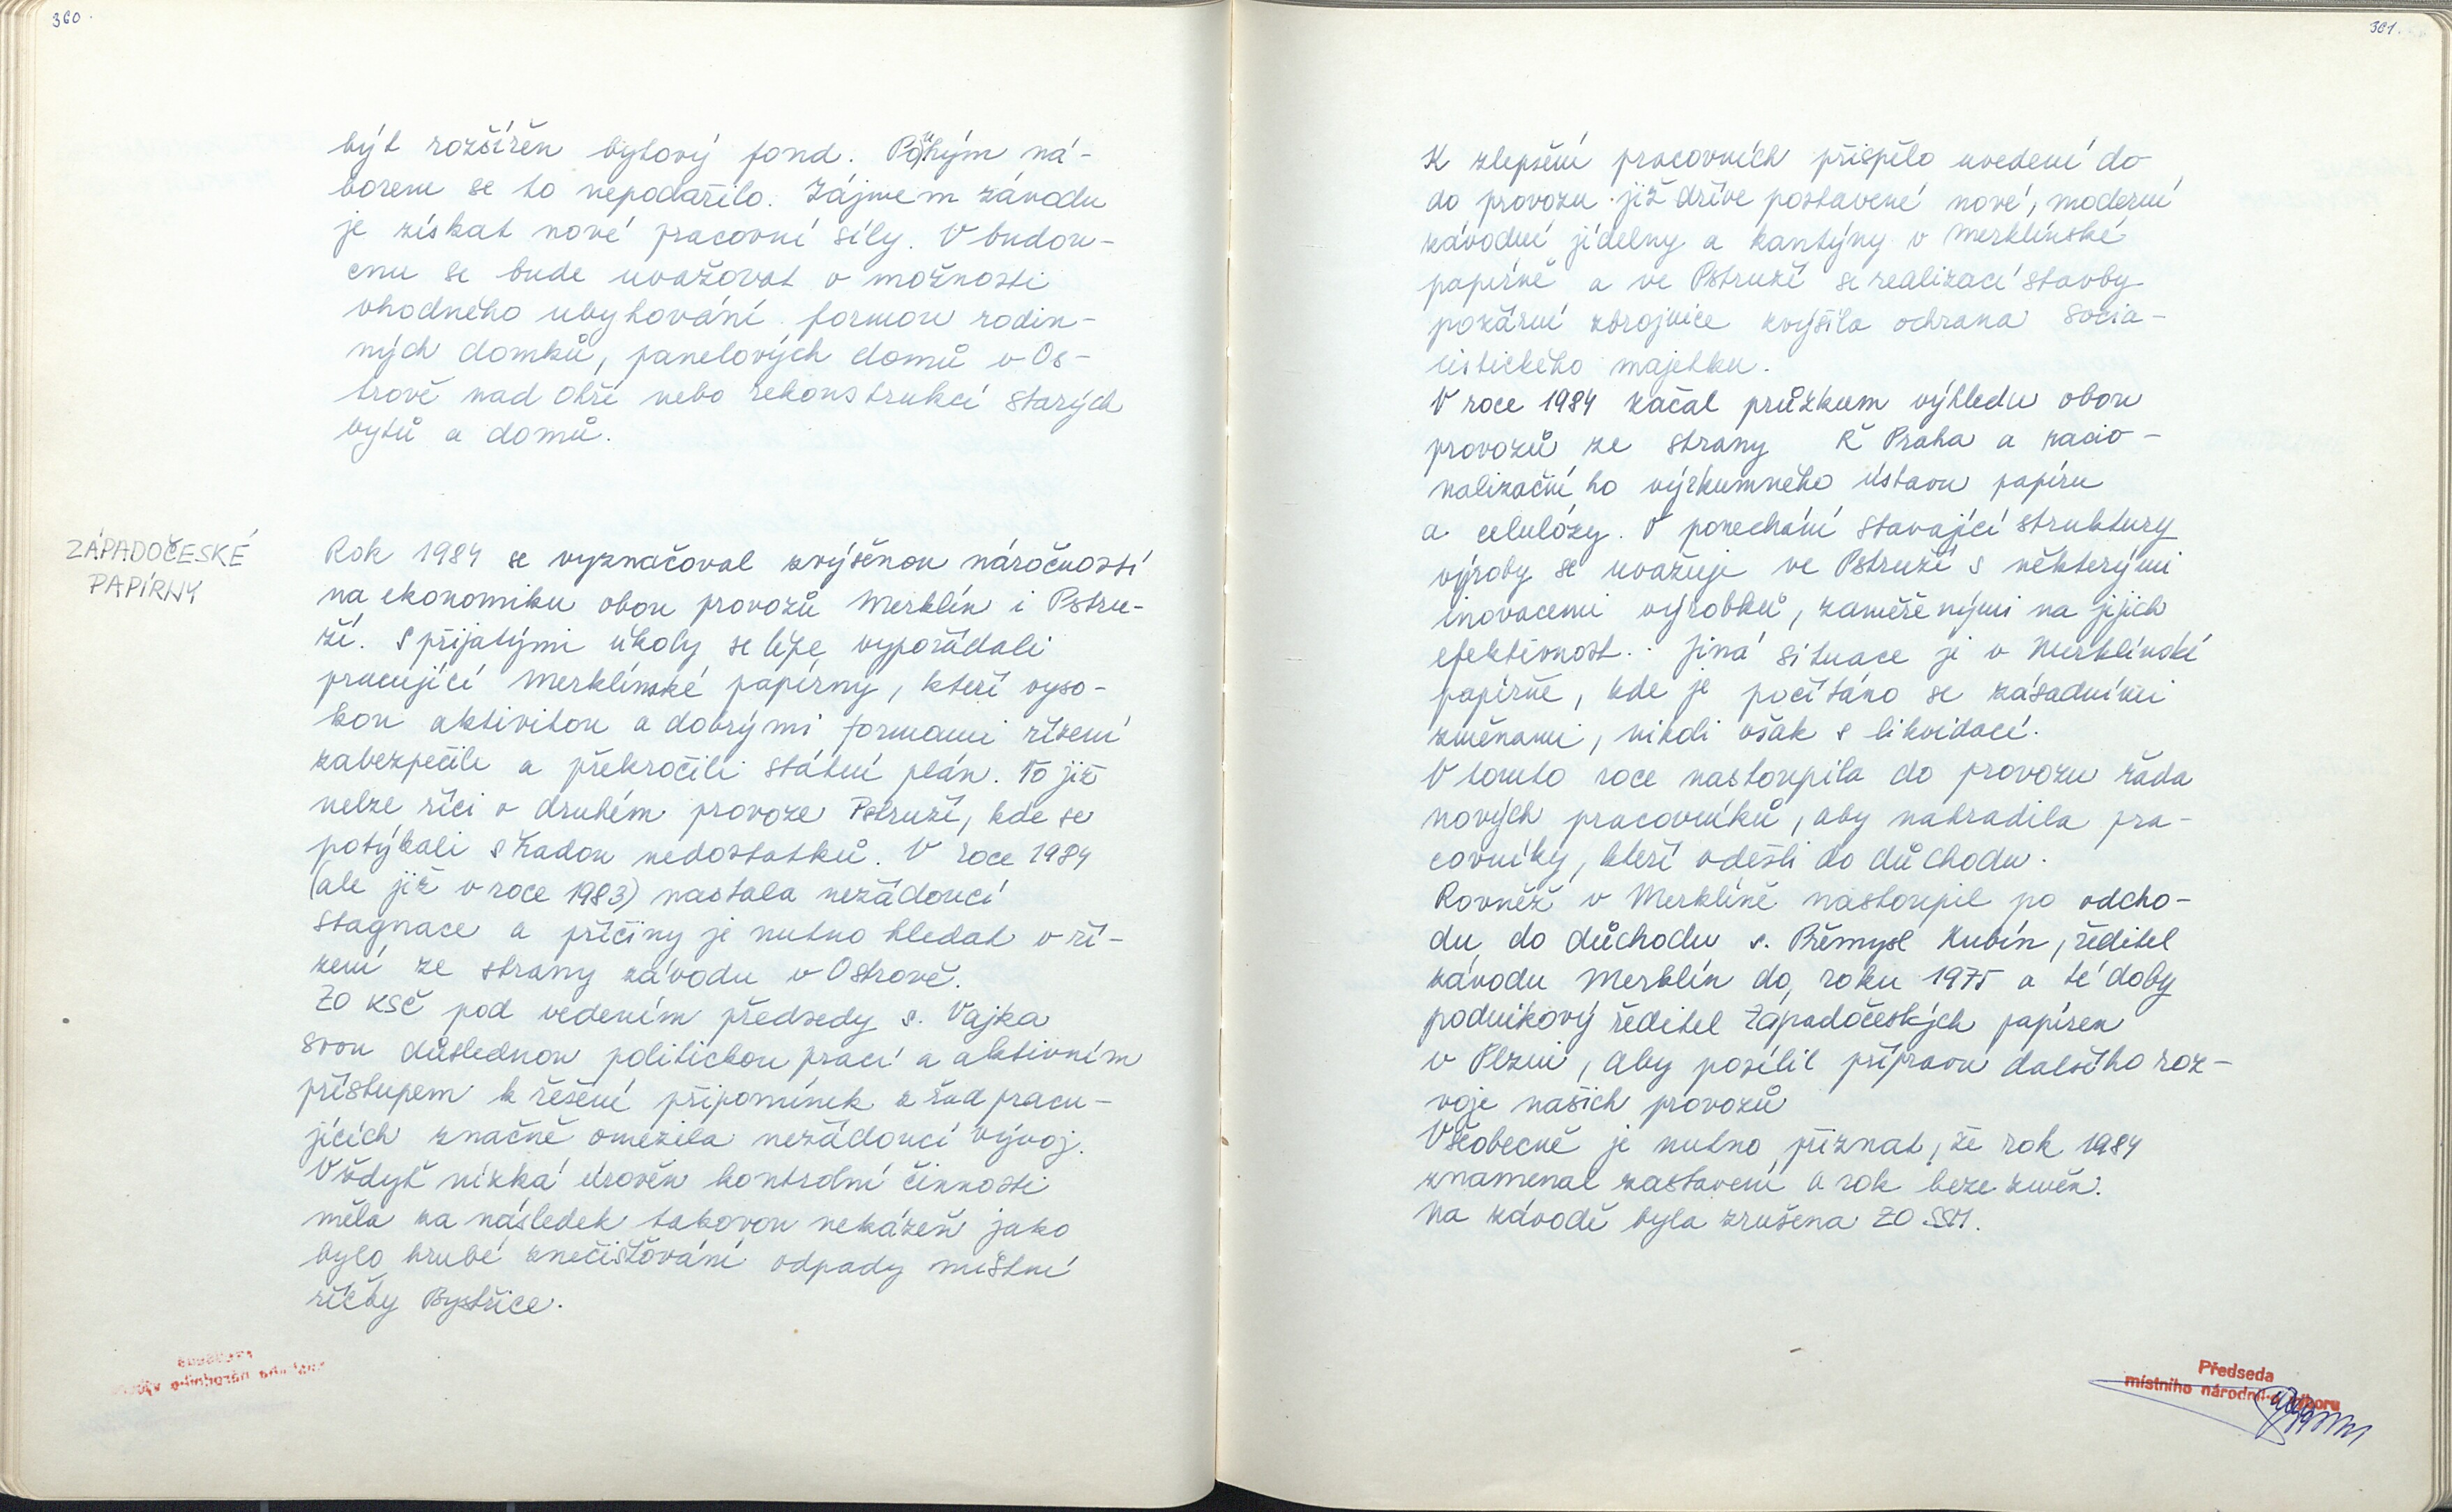 360.
být rozšířen bytový fond. Pouhým ná-
borem se to nepodařilo. Zájmem závodu
je získat nové pracovní síly. V budou-
cnu se bude uvažovat o možnosti
vhodného ubytování formou rodin-
ných domků, panelových domů v Os-
trově nad Ohří nebo rekonstrukcí starých
bytů a domů.
ZÁPADOČESKÉ
PAPÍRNY
Rok 1984 se vyznačoval zvýšenou náročností
na ekonomiku obou provozů Merklín i Pstru-
ží. S přijatými úkoly se lépe vypořádali
pracující Merklínské papírny, kteří vyso-
kou aktivitou a dobrými formami řízení
zabezpečili a překročili státní plán. To již
nelze říci o druhém provoze Pstruží, kde se
potýkali s řadou nedostatků. V roce 1984
(ale již v roce 1983) nastala nežádoucí
stagnace a příčiny je nutno hledat v ří-
zení ze strany závodu v Ostrově.
ZO KSČ pod vedením předsedy s. Vajka
svou důslednou politickou prací a aktivním
přístupem k řešení připomínek z řad pracu-
jících značně omezila nežádoucí vývoj.
Vždyť nízká úroveň kontrolní činnosti
měla za následek takovou nekázeň jako
bylo hrubé znečišťování odpady místní
říčky Bystřice.
361.
K zlepšení pracovních přispělo uvedení do
do provozu již dříve postavené nové, moderní
závodní jídelny a kantýny v Merklínské
papírně a ve Pstruží se realizací stavby
požární zbrojnice zvýšila ochrana socia-
listického majetku.
V roce 1984 začal průzkum výhledu obou
provozů ze strany Ř Praha a racio-
nalizačního výzkumného ústavu papíru
a celulózy. V ponechání stavající struktury
výroby se uvažuje ve Pstruží s některými
inovacemi výrobků, zaměřenými na jejich
efektivnost. Jiná situace je v Merklínské
papírně, kde je počítáno se zásadními
změnami, nikoli však s likvidací.
V tomto roce nastoupila do provozu řada
nových pracovníků, aby nahradila pra-
covníky, kteří odešli do důchodu.
Rovněž v Merklíně nastoupil po odcho-
du do důchodu s. Přemysl Kubín, ředitel
závodu Merklín do roku 1975 a té doby
podnikový ředitel Západočeských papíren
v Plzni, aby posílil přípravu dalšího roz-
voje našich provozů
Všeobecně je nutno přiznat, že rok 1984
znamenal zastavení a rok beze změn.
Na závodě byla zrušena ZO SSM.
Předseda
místního národního výboru